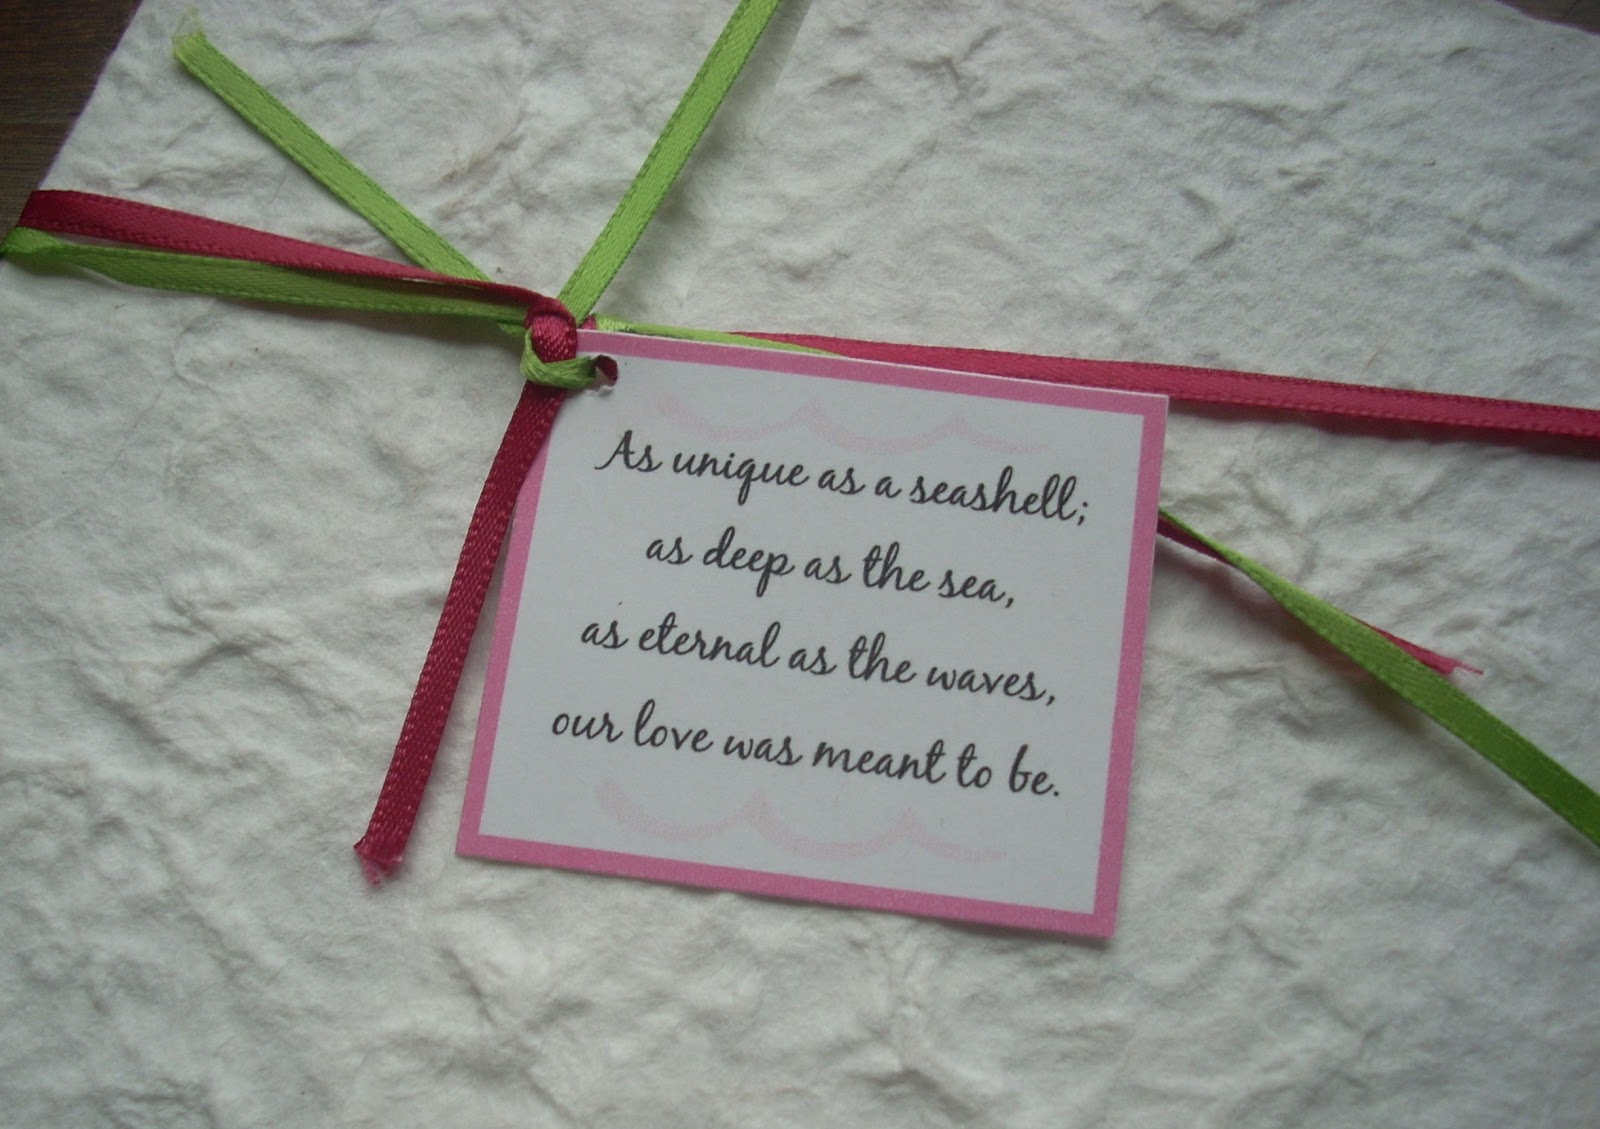 As unique as a seashell;
as deep as the sea,
as eternal as the waves,
our love was meant to be.